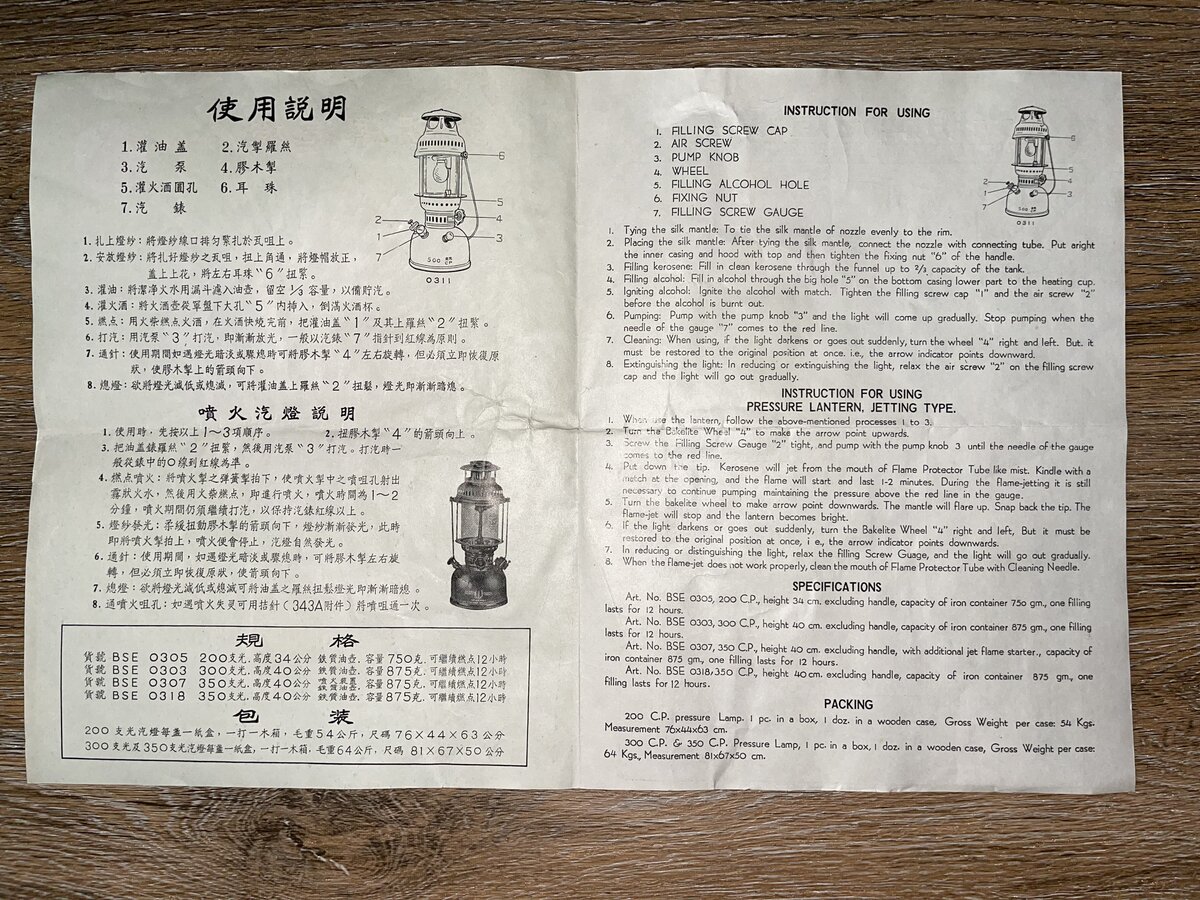 使用説明
1.灌油蓋 2.汽掣羅絲
3.汽泵 4.膠木掣
5.灌火酒圓孔 6.耳珠
7.汽錶
6
5
4
3
2
1
7
500 CP
0311
1. 扎上燈紗：將燈紗線口排匀緊扎於瓦咀上。
2. 安放燈紗：將扎好燈紗之瓦咀，扭上角通，將燈帽放正，
蓋上上花，將左右耳珠“6”扭緊。
3. 灌油：將潔净火水用漏斗濾入油壺，留空1/3容量，以備貯汽。
4. 灌火酒：將火酒壺從罩盤下大孔“5”内挿入，倒滿火酒杯。
5. 燃点：用火柴燃点火酒，在火酒快燒完前，把灌油蓋“1”及其上羅絲“2”扭緊。
6. 打汽：用汽泵“3”打汽，即漸漸放光，一般以汽錶“7”指針到紅線為原則。
7. 通針：使用期間如遇燈光暗淡或驟熄時可將膠木掣“4”左右旋轉，但必須立即恢復原
狀，使膠木掣上的箭頭向下。
8. 熄燈：欲將燈光減低或熄滅，可將灌油蓋上羅絲“2”扭鬆，燈光即漸漸暗熄。
噴火汽燈説明
1. 使用時，先按以上1～3項順序。 2. 扭膠木掣“4”的箭頭向上。
3. 把油盖錶羅絲“2”扭緊，然後用汽泵“3”打汽。打汽時一
般從錶中的0線到紅線為準。
4. 燃点噴火：將噴火掣之弹簧掣拍下，使噴火掣中之噴咀孔射出
霧狀火水，然後用火柴燃点，即進行噴火，噴火時間為1～2
分鐘，噴火期間仍須繼續打汽，以保持汽錶紅線以上。
5. 燈紗發光：柔緩扭動膠木掣的箭頭向下，燈紗漸漸發光，此時
即將噴火掣拍上，噴火便會停止，汽燈自然發光。
6. 通針：使用期間，如遇燈光暗淡或驟熄時，可將膠木掣左右旋
轉，但必須立即恢復原狀，使箭頭向下。
7. 熄燈：欲將燈光減低或熄滅可將油盖之羅絲扭鬆燈光即漸漸暗熄。
8. 通噴火咀孔：如遇噴火失灵可用拮針（343A附件）將噴咀通一次。
規格
貨號 BSE 0305 200支光.高度34公分 鉄質油壺.容量750克.可繼續燃点12小時
貨號 BSE 0303 300支光.高度40公分 鉄質油壺.容量875克.可繼續燃点12小時
貨號 BSE 0307 350支光.高度40公分 噴火裝置 鉄質油壺.容量875克.可繼續燃点12小時
貨號 BSE 0318 350支光.高度40公分 鉄質油壺.容量875克.可繼續燃点12小時
包装
200支光汽燈每盞一纸盒，一打一木箱，毛重54公斤，尺碼76×44×63公分
300支光及350支光汽燈每盞一紙盒，一打一木箱，毛重64公斤，尺碼81×67×50公分
INSTRUCTION FOR USING
1. FILLING SCREW CAP
2. AIR SCREW
3. PUMP KNOB
4. WHEEL
5. FILLING ALCOHOL HOLE
6. FIXING NUT
7. FILLING SCREW GAUGE
6
5
4
3
2
1
7
0311
1. Tying the silk mantle: To tie the silk mantle of nozzle evenly to the rim.
2. Placing the silk mantle: After tying the silk mantle, connect the nozzle with connecting tube. Put aright
the inner casing and hood with top and then tighten the fixing nut "6" of the handle.
3. Filling kerosene: Fill in clean kerosene through the funnel up to 2/3 capacity of the tank.
4. Filling alcohol: Fill in alcohol through the big hole "5" on the bottom casing lower part to the heating cup.
5. Igniting alcohol: Ignite the alcohol with match. Tighten the filling screw cap "1" and the air screw "2"
before the alcohol is burnt out.
6. Pumping: Pump with the pump knob "3" and the light will come up gradually. Stop pumping when the
needle of the gauge "7" comes to the red line.
7. Cleaning: When using, if the light darkens or goes out suddenly, turn the wheel "4" right and left. But. it
must be restored to the original position at once. i.e., the arrow indicator points downward.
8. Extinguishing the light: In reducing or extinguishing the light, relax the air screw "2" on the filling screw
cap and the light will go out gradually.
INSTRUCTION FOR USING
PRESSURE LANTERN, JETTING TYPE.
1. When use the lantern, follow the above-mentioned processes 1 to 3.
2. Turn the Bakelite Wheel "4" to make the arrow point upwards.
3. Screw the Filling Screw Gauge "2" tight, and pump with the pump knob 3 until the needle of the gauge
comes to the red line.
4. Put down the tip. Kerosene will jet from the mouth of Flame Protector Tube like mist. Kindle with a
match at the opening, and the flame will start and last 1-2 minutes. During the flame-jetting it is still
necessary to continue pumping maintaining the pressure above the red line in the gauge.
5. Turn the bakelite wheel to make arrow point downwards. The mantle will flare up. Snap back the tip. The
flame-jet will stop and the lantern becomes bright.
6. If the light darkens or goes out suddenly, turn the Bakelite Wheel "4" right and left, But it must be
restored to the original position at once, i e., the arrow indicator points downwards.
7. In reducing or distinguishing the light, relax the filling Screw Guage, and the light will go out gradually.
8. When the flame-jet does not work properly, clean the mouth of Flame Protector Tube with Cleaning Needle.
SPECIFICATIONS
Art. No. BSE 0305, 200 C.P., height 34 cm. excluding handle, capacity of iron container 750 gm., one filling
lasts for 12 hours.
Art. No. BSE 0303, 300 C.P., height 40 cm. excluding handle, capacity of iron container 875 gm., one filling
lasts for 12 hours.
Art. No. BSE 0307, 350 C.P., height 40 cm. excluding handle, with additional jet flame starter., capacity of
iron container 875 gm., one filling lasts for 12 hours.
Art. No. BSE 0318,350 C.P., height 40 cm. excluding handle, capacity of iron container 875 gm., one
filling lasts for 12 hours.
PACKING
200 C.P. pressure Lamp. 1 pc. in a box, 1 doz. in a wooden case, Gross Weight per case: 54 Kgs.
Measurement 76x44x63 cm.
300 C.P. & 350 C.P. Pressure Lamp, 1 pc. in a box, 1 doz. in a wooden case, Gross Weight per case:
64 Kgs., Measurement 81x67x50 cm.